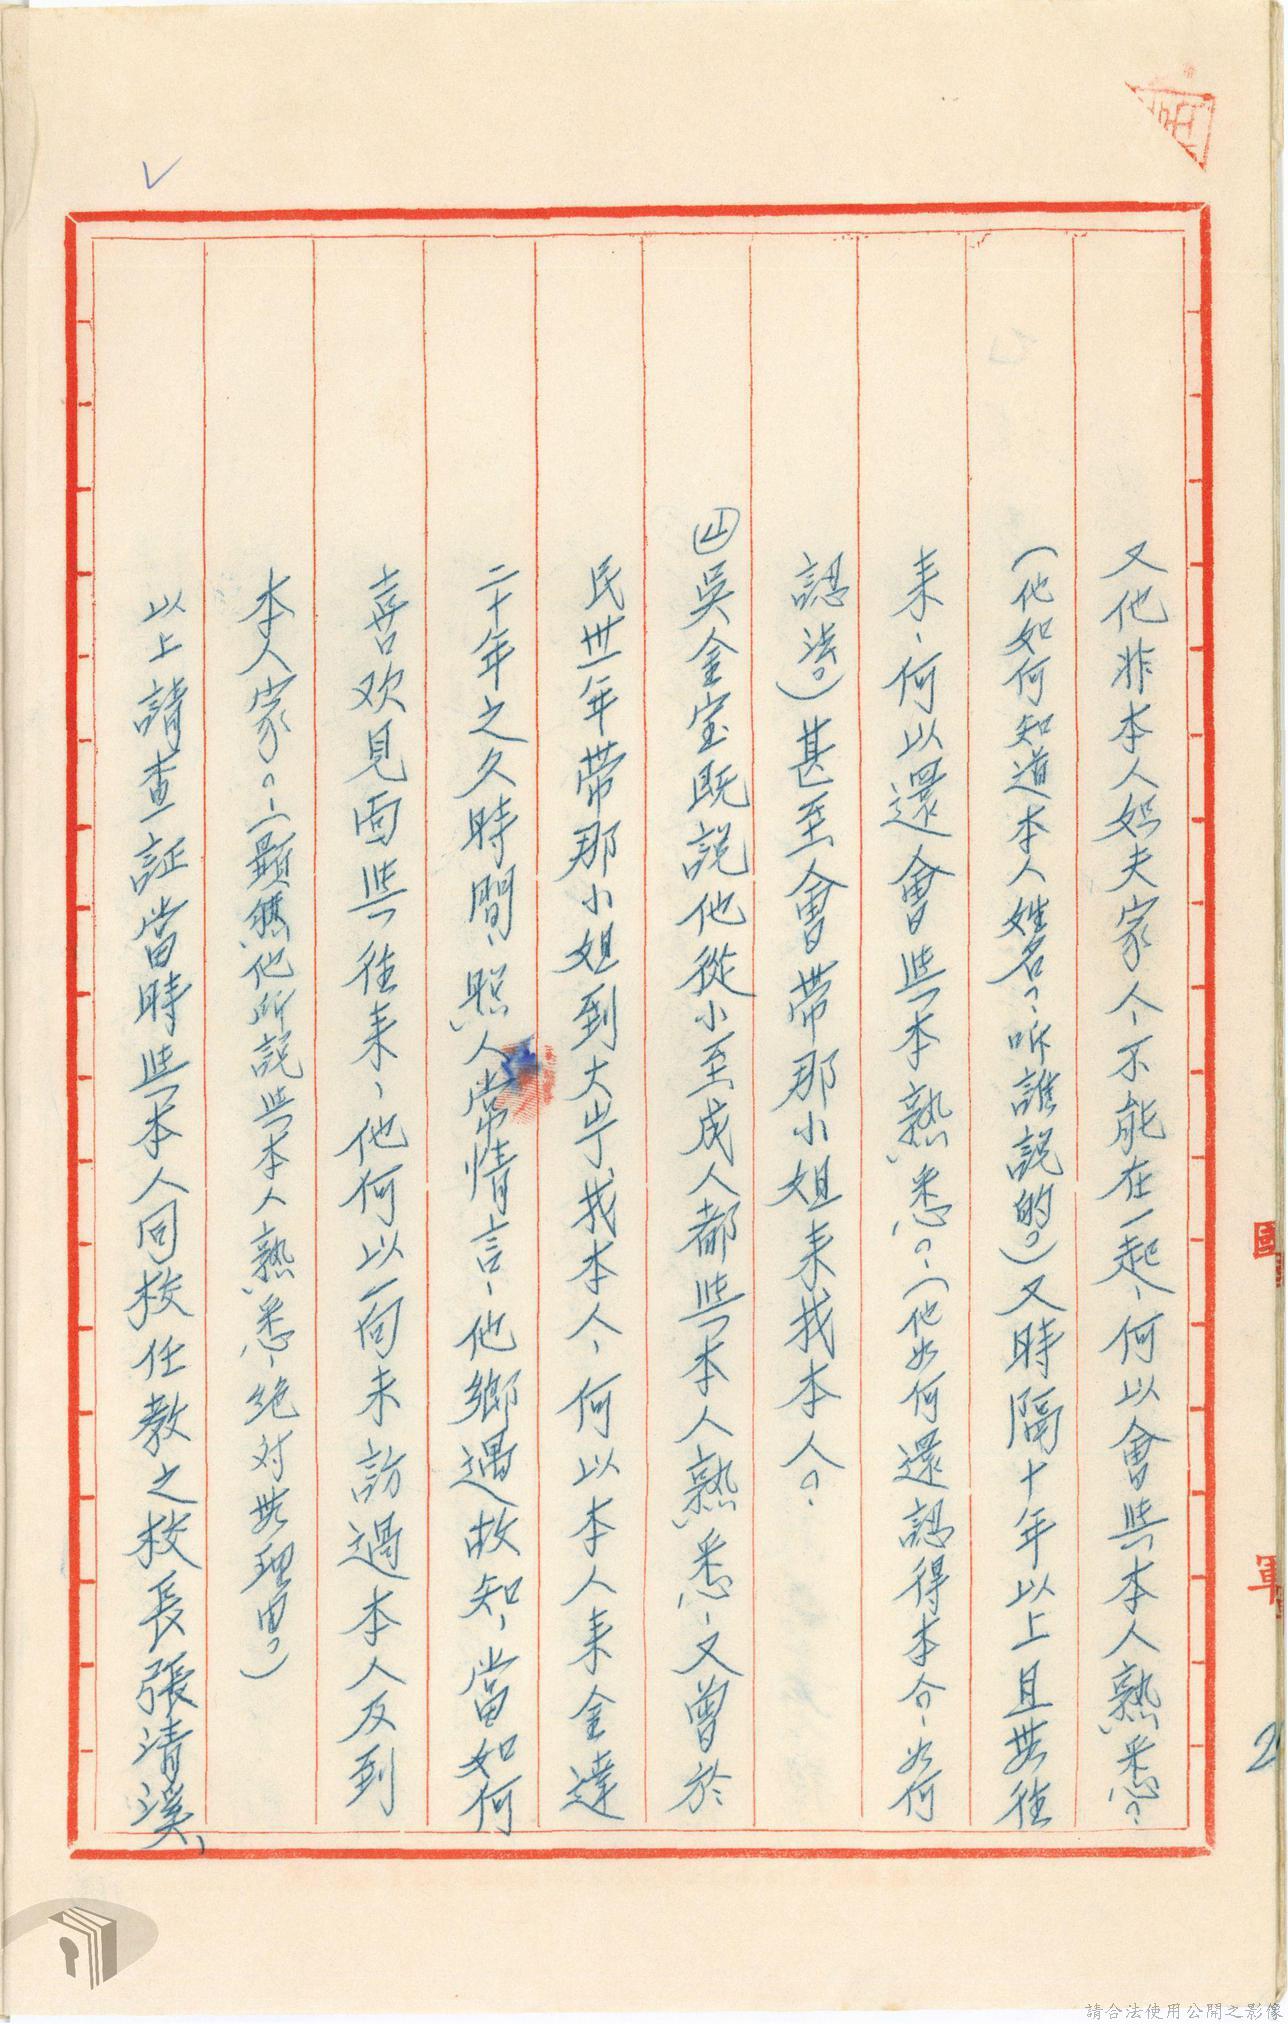 又他非本人妳夫家人、不能在一起、何以會与本人熟悉？
(他如何知道本人姓名？听誰説的？)又時隔十年以上且無往
来、何以還會与本熟悉？(他如何還認得本人？如何
認法？)甚至會带那小姐来找本人？
④吳金宝既説他從小至成人都与本人熟悉、又曾於
民卅年带那小姐到大庁找本人、何以本人来金達
二十年之久時間、照人常情言、他鄉遇故知、當如何
喜欢見面与往来、他何以一向未訪過本人及到
本人家？(顯然他所説与本人熟悉、絶对無理由。)
以上請查証當時与本人同校任教之校長張清溪、
國
軍
請合法使用公開之影像